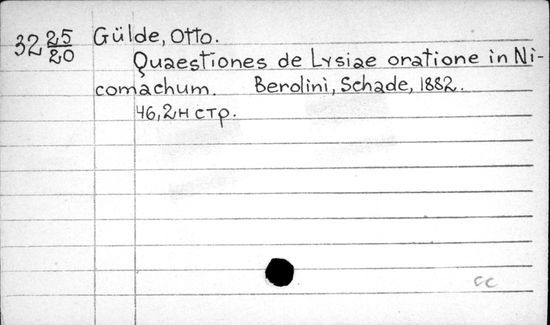 32 25/20 Gülde, Otto.
Quaestiones de Lysiae oratione in Ni-
comachum. Berolini, Schade, 1882.
46, 2н стр.
cc